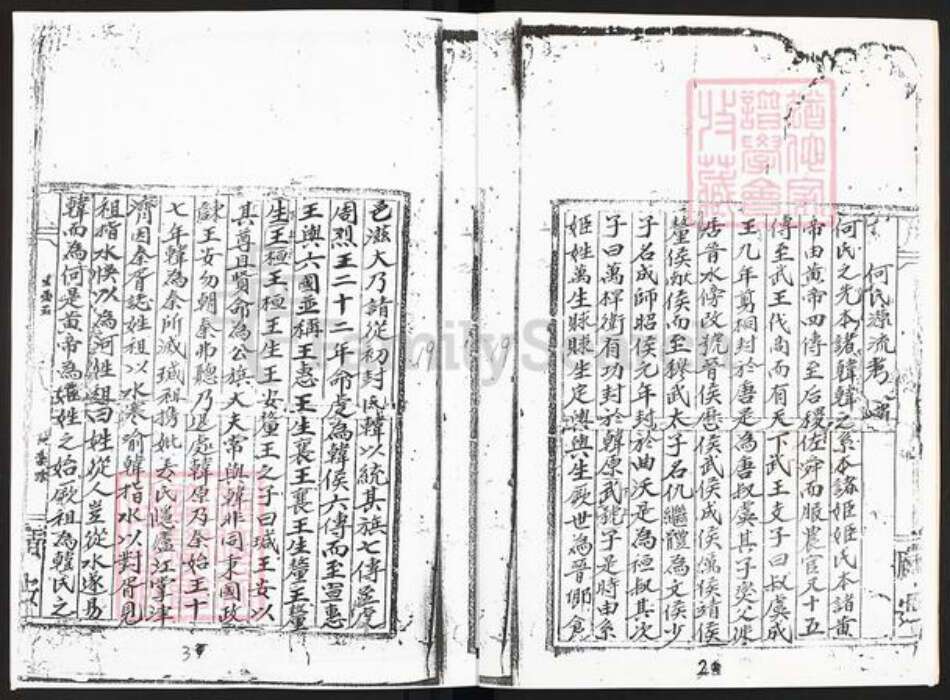 何氏源流考
何氏之先本諸韓韓之系本諸姬姬氏本諸黃
帝由黃帝四傳至后稷佐舜而服農官又十五
傳至武王伐商而有天下武王支子曰叔虞成
王九年剪桐封於唐是為唐叔虞其子燮父
居晉水傍改號晉侯歷侯武侯成侯侯靖侯
釐侯獻侯而至穆武太子名仇繼體為文侯少
子名成師昭侯元年封於曲沃是為桓叔其次
子曰萬有功封於韓原武子是時由系
姬姓萬生賕賕生定輿輿生厥世為晉卿食
邑滋大乃請從初封氏韓以統其族七傳至虔
周烈王二十二年命虔為韓侯六傳而至宣惠
王與六國並稱王惠王生襄王襄王生釐王釐
生王桓王桓王生王安釐王之子曰瑊王安以
其尊且賢命為公族大夫常與韓非同秉國政
王安勿朝秦弗聽乃退處韓原乃秦始王十
七年韓為秦所滅瑊祖携妣氏隱廬江掌津
濟因秦胥誌姓祖以水寒喻韓指水以對胥見
祖指水悞以為河姓祖曰姓從人豈從水遂易
韓而為何是黃帝為姬姓之始厥祖為韓氏之
2
3
19
19
FamilySearch